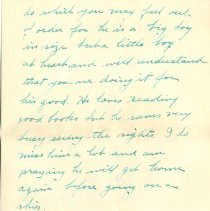 do which you may feel out
of order for he is a big boy
in size but a little boy
at heart and will understand
that you are doing it for
his good. He loves reading
good books but he seems very
busy seeing the sights. I do
miss him a lot and am
praying he will get home
again before going on a
ship.